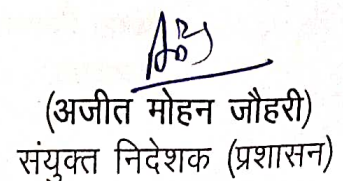 (अजीत मोहन जौहरी)
संयुक्त निदेशक (प्रशासन)